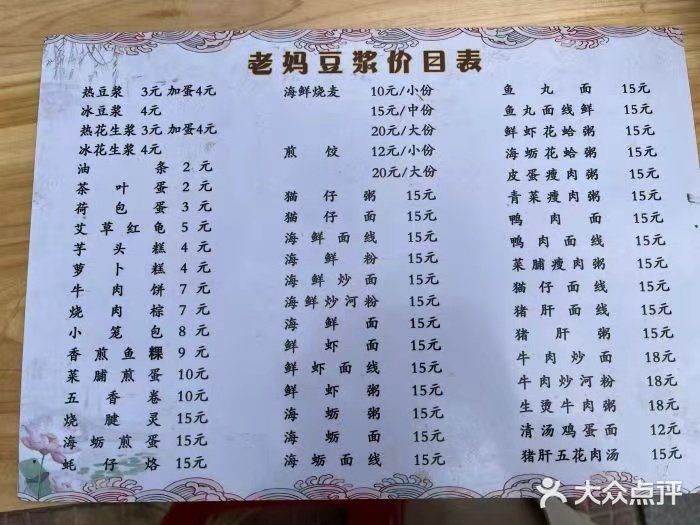 老妈豆浆价目表
热豆浆 3元 加蛋4元
冰豆浆 4元
热花生浆 3元 加蛋4元
冰花生浆 4元
油条 2元
茶叶蛋 2元
荷包蛋 3元
艾草红龟 5元
芋头糕 4元
萝卜糕 4元
牛肉饼 7元
烧肉粽 7元
小笼包 8元
香煎鱼粿 9元
菜脯煎蛋 10元
五香卷 10元
烧腱灵 15元
海蛎煎蛋 15元
蚝仔烙 15元
海鲜烧麦 10元/小份
15元/中份
20元/大份
煎饺 12元/小份
20元/大份
猫仔粥 15元
猫仔面 15元
海鲜面线 15元
海鲜粉 15元
海鲜炒面 15元
海鲜炒河粉 15元
海鲜面 15元
鲜虾面 15元
鲜虾面线 15元
鲜虾粥 15元
海蛎粥 15元
海蛎面 15元
海蛎面线 15元
鱼丸面 15元
鱼丸面线鲜 15元
鲜虾花蛤粥 15元
海蛎花蛤粥 15元
皮蛋瘦肉粥 15元
青菜瘦肉粥 15元
鸭肉面 15元
鸭肉面线 15元
菜脯瘦肉粥 15元
猫仔面线 15元
猪肝面线 15元
猪肝粥 15元
牛肉炒面 18元
牛肉炒河粉 18元
生烫牛肉粥 18元
清汤鸡蛋面 12元
猪肝五花肉汤 15元
大众点评